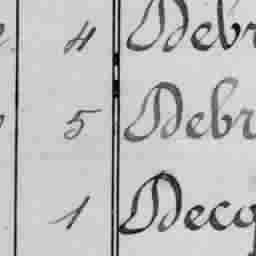 4 Debr
5 Debr
1 Decq